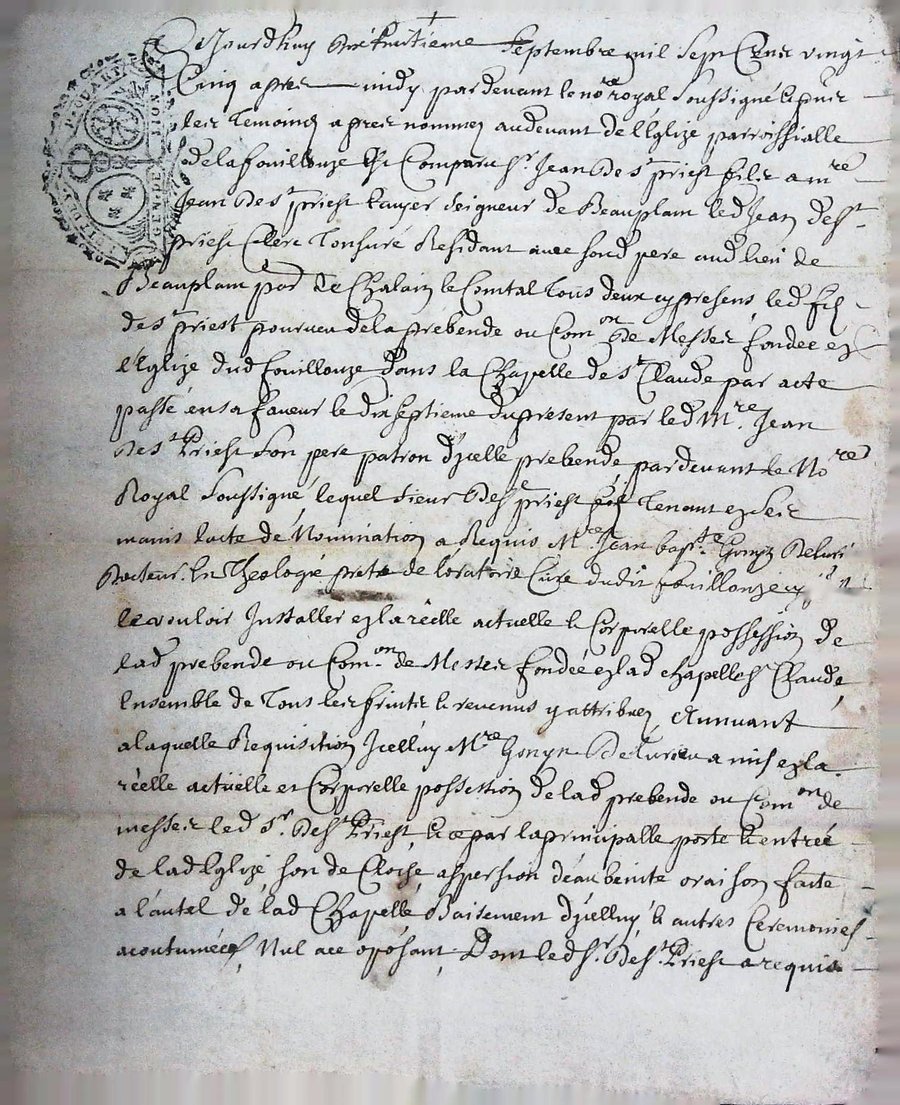 Aujourdhuy dixhuitieme Septembre mil sept Cens vingt
Cinq apres midy pardevant le nore royal soussigné & puis
les temoins apres nommez audevant de lEglize parroissialle
de la fouillouze Est Comparu sr. Jean de st priest filz a mre
Jean de st priest Escuyer Seigneur de Beauplain led Jean de st
priest Clerc tonsuré Residant avec sond pere aud lieu de
Beauplain par de Chalain le Comtal tous deux cy presens, led filz
de st priest pourveu de la prébende ou Comon de Messes fondée en
l'Eglize dud fouillouze Dans la Chapelle de st Claude par acte
passé en sa faveur le dix septieme du present par led Mre. Jean
de st Priest son pere patron d'jcelle prebende pardevant le Nore
Royal soussigné, lequel sieur de st priest filz tenant en ses
mains lacte de Nomination a Requis Mre Jean bapte. Gonyn Delurieu
Docteur En Theologie pretre de l'oratoire Curé dudit fouillouze
le vouloir Installer en la réelle actuelle & Corporelle possession de
lad prebende ou Comon de Messes fondée en lad chapelle st Claude,
Ensemble de tous les fruits & revenus y attribuez, Annuant
a laquelle Requisition Jcelluy Mre Gonyn Delurieu a mis en la
réelle actuelle et Corporelle possession de lad prebende ou Comon de
messes led sr. de st Priest, & ce par la principalle porte & entrée
de lad Eglize son de Cloche aspersion d'eau benite oraison faite
a l'autel de lad Chapelle, Baisement d'jcelluy & autres Ceremonies
acoutumées, Nul a ce opósant, Dont led sr. de st. Priest a requis
GEN. DE LION